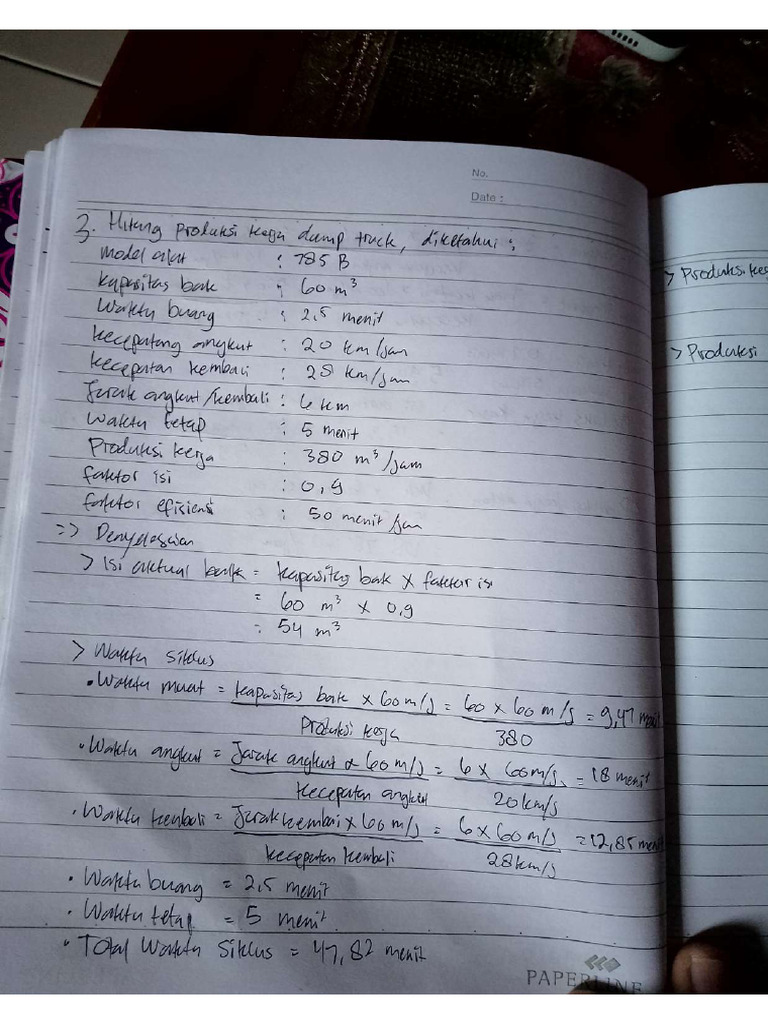 No.
Date :
3. Hitung produksi kerja dump truck, diketahui :
model alat : 785 B
kapasitas bak : 60 m³
Waktu buang : 2,5 menit
kecepatang angkut : 20 km/jam
kecepatan kembali : 28 km/jam
Jarak angkut/kembali : 6 km
waktu tetap : 5 menit
Produksi kerja : 380 m³/jam
faktor isi : 0,9
faktor efisiensi : 50 menit/jam
=> Penyelesaian
> Isi aktual bak = kapasitas bak x faktor isi
= 60 m³ x 0,9
= 54 m³
> Waktu siklus
• Waktu muat = kapasitas bak x 60 m/j = 60 x 60 m/j = 9,47 menit
Produksi kerja 380
• Waktu angkut = Jarak angkut x 60 m/j = 6 x 60 m/j = 18 menit
kecepatan angkut 20 km/j
• Waktu kembali = Jarak kembai x 60 m/j = 6 x 60 m/j = 12,85 menit
kecepatan kembali 28 km/j
• Waktu buang = 2,5 menit
• Waktu tetap = 5 menit
• Total Waktu Siklus = 47,82 menit
PAPERLINE
> Produksi
> Produksi